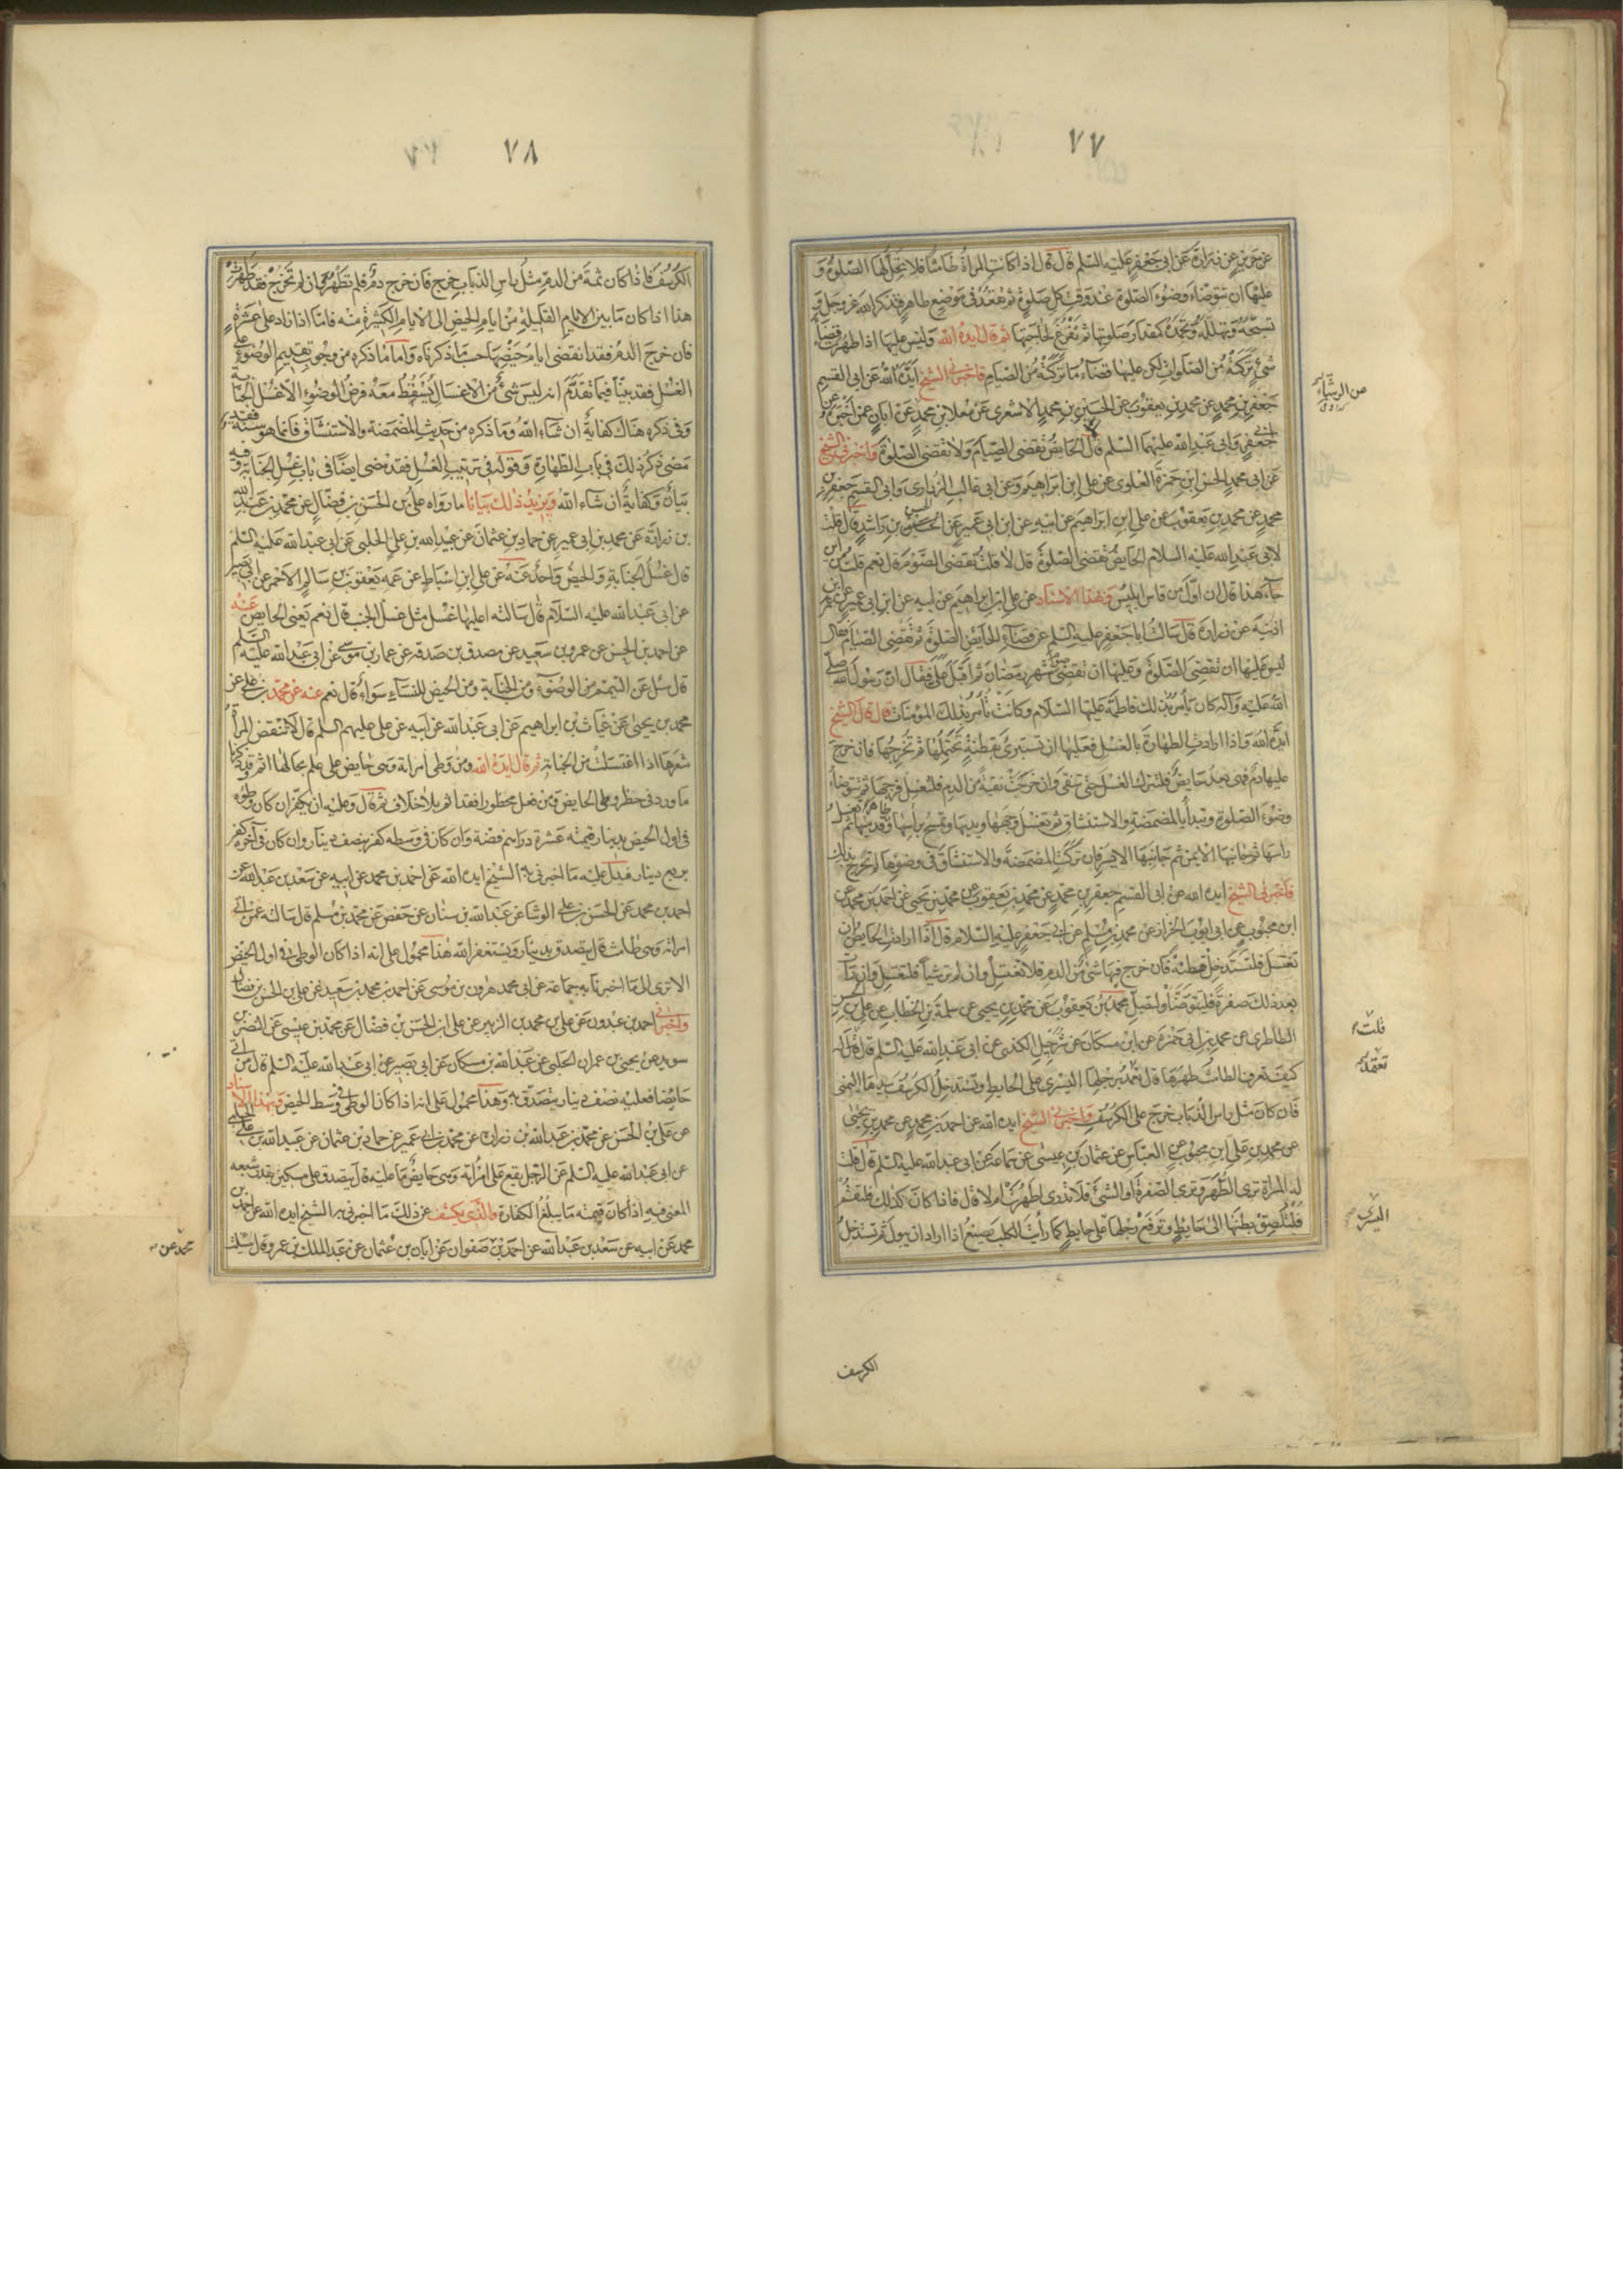 ٧٧
عن حريز عن زرارة عن ابى جعفر عليه السلم قال قال اذا كانت المراة طامثا فلا تحل لها الصلوة و
عليها ان تتوضاء وضوء الصلوة عند وقت كل صلوة ثم تقعد فى موضع طاهر فتذكر الله عز وجل و
تسبحه وتهلله وتحمده كمقدار صلوتها ثم تفرغ لحاجتها ثم قال ايده الله وليس عليها اذا طهرت قضاء
شئ تركته من الصلوات لكن عليها قضاء ما تركته من الصيام فاخبرنى الشيخ ايده الله عن ابى القسم
جعفر بن محمد عن محمد بن يعقوب عن الحسين بن محمد الاشعرى عن معلا بن محمد عن ابان عمن اخبره عن
ابى جعفر وابى عبد الله عليهما السلم قال الحايض تقضى الصيام ولا تقضى الصلوة واخبرنى الشيخ
عن ابى محمد الحسن ابن حمزة العلوى عن على ابن ابراهيم وعن ابى غالب الزرارى وابى القسم جعفر بن
محمد عن محمد بن يعقوب عن على ابن ابراهيم عن ابيه عن ابن ابى عمير عن الحسين بن راشد قال قلت
لابى عبد الله عليه السلام الحايض تقضى الصلوة قال لا قلت تقضى الصوم قال نعم قلت من اين
جاء هذا قال ان اول من قاس ابليس وبهذا الاسناد عن على ابن ابراهيم عن ابيه عن ابن ابى عمير عن ابن
اذينة عن زرارة قال سالت ابا جعفر عليه السلم عن قضاء الحايض الصلوة ثم تقضى الصيام فقال
ليس عليها ان تقضى الصلوة وعليها ان تقضى صوم شهر رمضان ثم اقبل على فقال ان رسول الله صلى
الله عليه وآله كان يأمر بذلك فاطمة عليها السلام وكانت تأمر بذلك المؤمنات قال قال الشيخ
ايده الله واذا ارادت الطهارة بالغسل فعليها ان تستبرئ بقطنة تحتملها ثم تخرجها فان خرج
عليها دم فهى بعد حايض فلتترك الغسل حتى تنقى وان خرجت نقية من الدم فلتغسل فرجها ثم تتوضأ
وضوء الصلوة وتبدأ بالمضمضة والاستنشاق ثم تغسل وجهها ويديها وتمسح برأسها وظاهر قدميها ثم تغسل
راسها ثم جانبها الايمن ثم جانبها الايسر فان تركت المضمضة والاستنشاق فى وضوءها لم تحرج بذلك
فاخبرنى الشيخ ايده الله عن ابى القسم جعفر بن محمد عن محمد بن يعقوب عن محمد بن يحيى عن احمد بن محمد عن
ابن محبوب عن ابى ايوب الخزاز عن محمد بن مسلم عن ابى جعفر عليه السلام قال اذا ارادت الحايض ان
تغتسل فلتستدخل قطنة فان خرج فيها شئ من الدم فلا تغتسل وان لم تر شيأ فلتغتسل وان رأت
بعد ذلك صفرة فلتتوضأ ولتصل محمد بن يعقوب عن محمد بن يحيى عن سلمة بن الخطاب عن على بن الحسن
الطاطرى عن محمد بن ابى حمزة عن ابن مسكان عن شرحبيل الكندى عن ابى عبد الله عليه السلم قال قلت له
كيف تعرف الطامث طهرها قال تعمد برجلها اليسرى على الحايط وتستدخل الكرسف بيدها اليمنى
فان كان مثل راس الذباب خرج على الكرسف واخبرنى الشيخ ايده الله عن احمد بن محمد عن محمد بن يحيى
عن محمد بن على ابن محبوب عن العباس عن عثمان بن عيسى عن سماعة عن ابى عبد الله عليه السلم قال قلت
له المراة ترى الطهر وترى الصفرة او الشئ فلا تدرى اطهرت ام لا قال فاذا كان كذلك فلتقم
فلتلصق بطنها الى حايط وترفع رجلها على حايط كما رأيت الكلب يصنع اذا اراد ان يبول ثم تستدخل
الكرسف
قلت
تعمد
اليسرى
٧٨
الكرسف فاذا كان ثمة من الدم مثل راس الذباب خرج فان خرج دم فلم تطهر وان لم تخرج فقد طهرت
هذا اذا كان ما بين الايام القليلة من ايام الحيض الى الايام الكثيرة منه فامّا اذا زاد على عشرة
فان خرج الدم فقد انقضى ايام حيضها حسب ما ذكرناه واما ما ذكره من وجوب تقديم الوضوء على
الغسل فقد بينّا فيما تقدم انه ليس شئ من الاغسال يسقط معه فرض الوضوء الا غسل الجنابة
وفى ذكره هناك كفاية ان شاء الله وما ذكره من حديث المضمضة والاستنشاق فانما هو سنة فقد
مضى ذكر ذلك فى باب الطهارة وقوله فى ترتيب الغسل فقد مضى ايضا فى باب غسل الجنابة وفيه
بيان وكفاية ان شاء الله ويزيد ذلك بيانا ما رواه على بن الحسن بن فضال عن محمد بن عبد الله
بن زرارة عن محمد بن ابى عمير عن حماد بن عثمان عن عبيد الله بن على الحلبى عن ابى عبد الله عليه السلم
قال غسل الجنابة والحيض واحد عنه عن على ابن اسباط عن عمه يعقوب بن سالم الاحمر عن ابى بصير
عن ابى عبد الله عليه السلام قال سالته اعليها غسل مثل غسل الجنب قال نعم يعنى الحايض عنه
عن احمد بن الحسن عن عمرو بن سعيد عن مصدق بن صدقه عن عمار بن موسى عن ابى عبد الله عليه السلم
قال سئل عن التيمم من الوضوء ومن الجنابة ومن الحيض للنساء سواء قال نعم عنه عن محمد بن على عن
محمد بن يحيى عن غياث بن ابراهيم عن ابى عبد الله عن ابيه عن على عليهم السلم قال لا تنقض المرأة
شعرها اذا اغتسلت من الجنابة ثم قال ايده الله ومن وطى امراته وهى حايض على علم بحالها اثم
ما ورد فى حظر وطى الحايض ومن فعل محظورا فقد اثم بلا خلاف ثم قال وعليه ان يكفر ان كان وطؤه
فى اول الحيض بدينار قيمته عشرة دراهم فضة وان كان فى وسطه كفر بنصف دينار وان كان فى آخره كفر
بربع دينار فيدل عليه ما اخبرنى به الشيخ ايده الله عن احمد بن محمد عن ابيه عن سعد بن عبد الله عن
احمد بن محمد عن الحسن بن على الوشا عن عبد الله بن سنان عن حفص عن محمد بن مسلم قال سالته عمن اتى
امراته وهى طامث قال يتصدق بدينار ويستغفر الله هذا محمول على انه اذا كان الوطى فى اول الحيض
الا ترى الى ما اخبرنا به جماعة عن ابى محمد هرون بن موسى عن احمد بن محمد بن سعيد عن على بن الحسن بن فضال
واخبرنى احمد بن عبدون عن على بن محمد بن الزبير عن على ابن الحسن بن فضال عن محمد بن عيسى عن النضر بن
سويد عن يحيى بن عمران الحلبى عن عبد الله بن مسكان عن ابى بصير عن ابى عبد الله عليه السلم قال من اتى
حايضا فعليه نصف دينار يتصدق به وهذا محمول على انه اذا كان الوطى فى وسط الحيض وبهذا الاسناد
عن على بن الحسن عن محمد بن عبد الله بن زرارة عن محمد بن ابى عمير عن حماد بن عثمان عن عبيد الله بن على الحلبى
عن ابى عبد الله عليه السلم عن الرجل يقع على امرأته وهى حايض ما عليه قال يتصدق على مسكين بقدر شبعه
المعنى فيه اذا كان قيمته ما يبلغ الكفارة والذى يكشف عن ذلك ما اخبرنى به الشيخ ايده الله عن احمد بن
محمد عن ابيه عن سعد بن عبد الله عن احمد بن صفوان عن ابان بن عثمان عن عبد الملك بن عمرو قال سالت
محمد عن